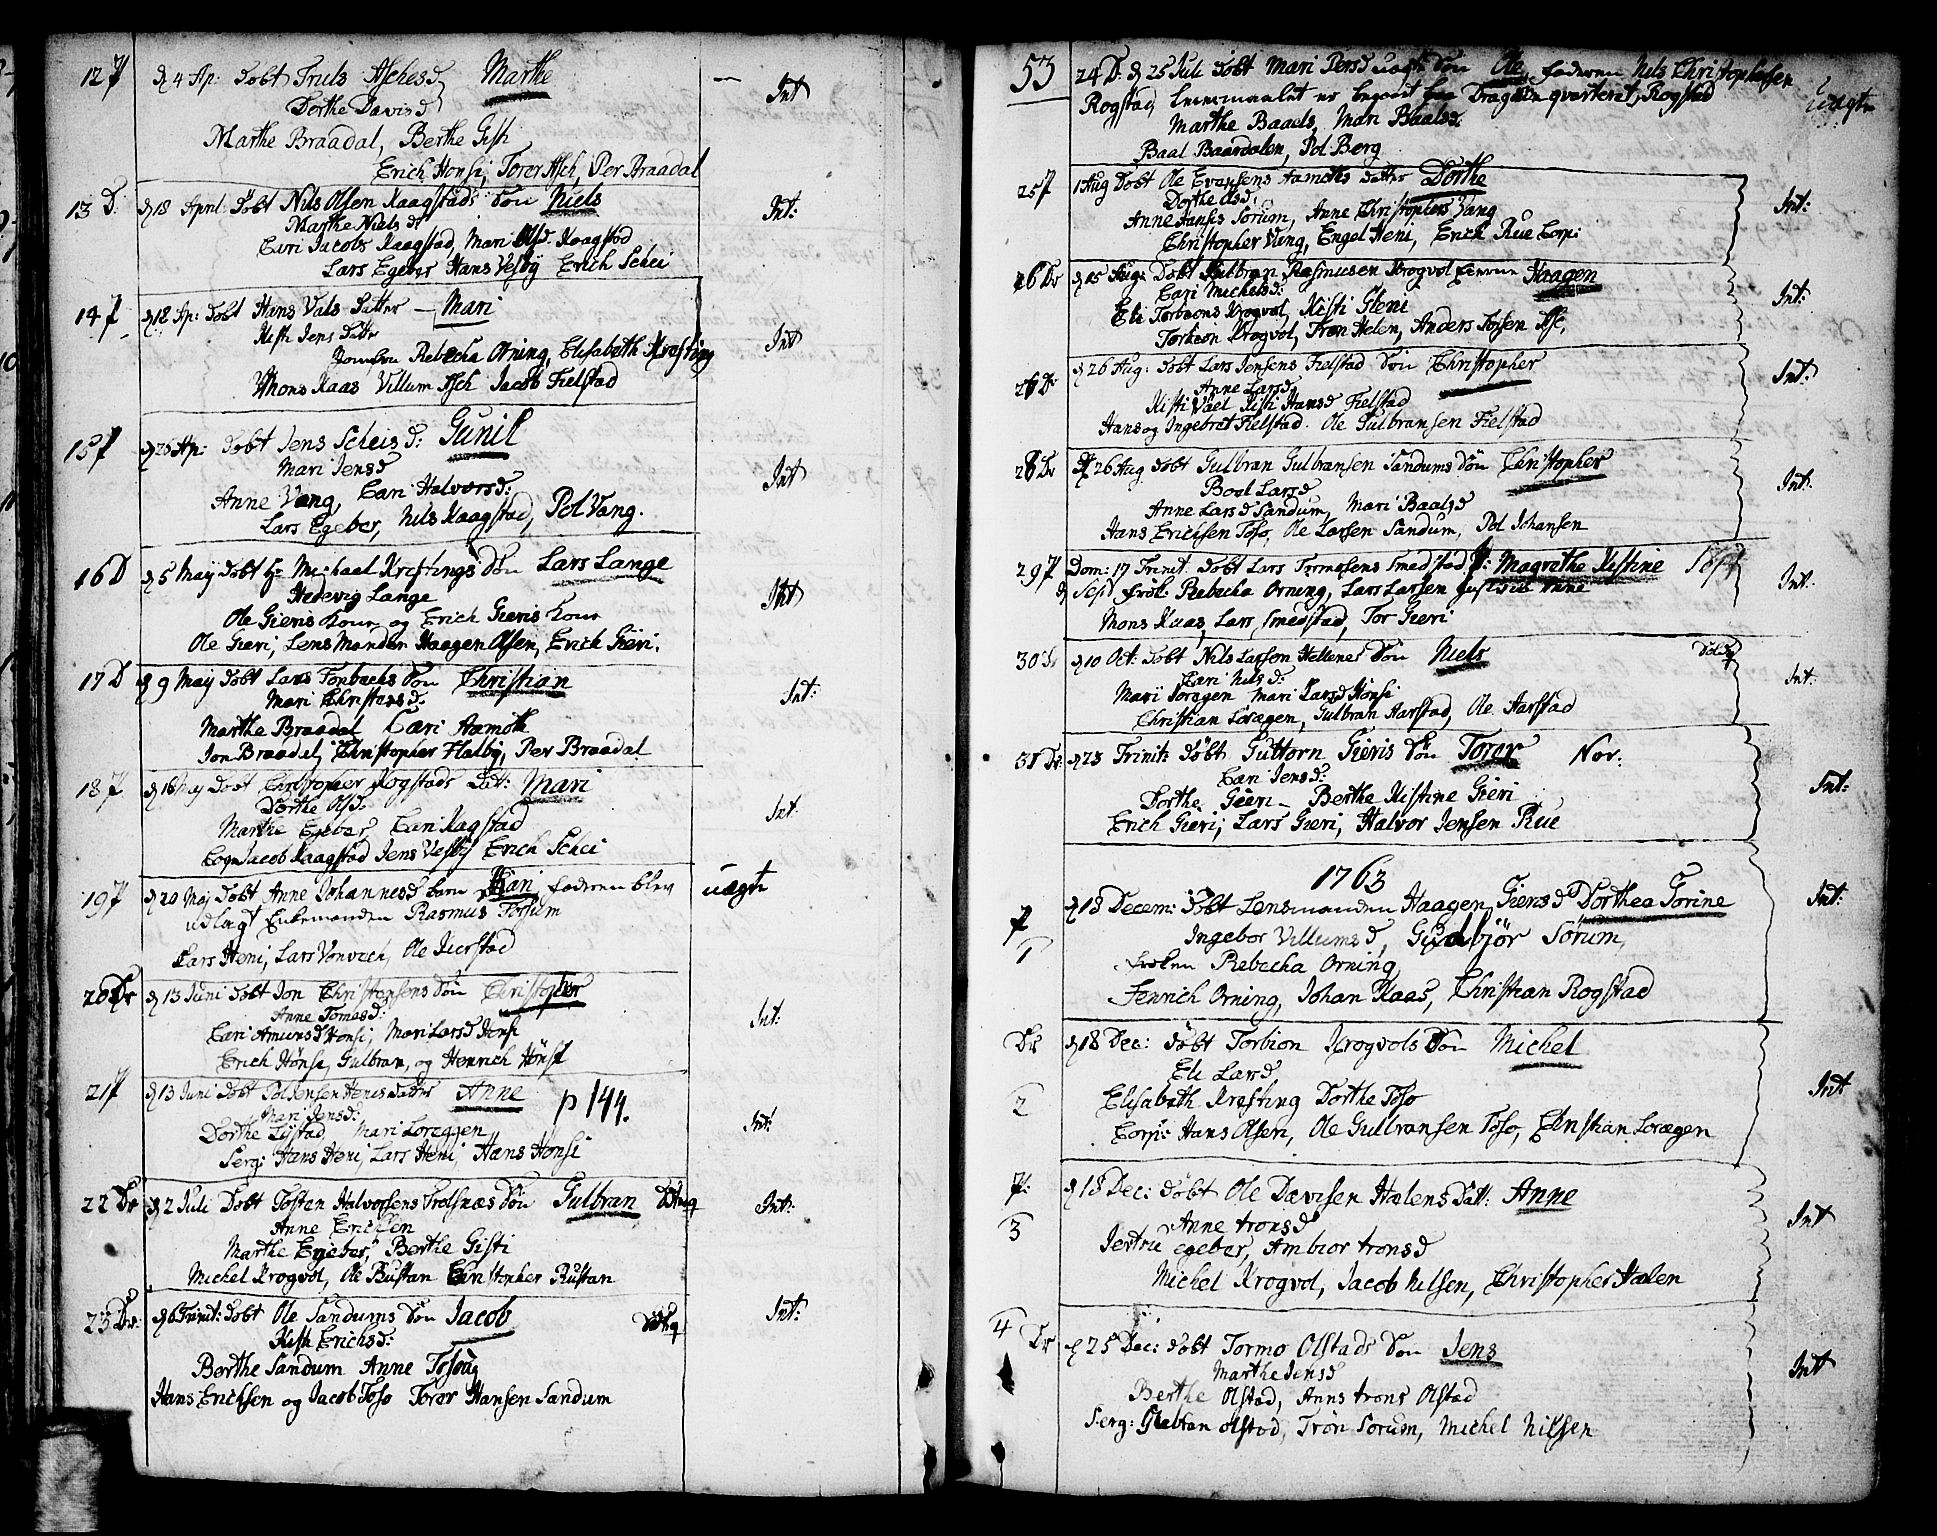 12 P d 4 Ap: Døbt Truls Aschesd Marthe — Int
Dorthe Davisd
Marthe Braadal, Berthe Gisti
Erich Honsi, Toror Asch, Per Braadal
13 D: d 18 April Døbt Nils Olsen Kaagstads Søn Niels Int:
Marthe Niels dt
Cari Jacobs Kaagstad, Mari Olsd Kaagstad
Lars Egeber Hans Vesby Erich Schei
14 P d 18 Ap: Døbt Hans Vals Datter — Mari Int
Kisti Jens Datr
Jomfru Rebecha Orning, Elisabeth Kresting
Mons Kaas Villum Asch Jacob Fielstad
15 P d 25 Ap: Døbt Jens Scheis d: Gunil Int
Mari Jensd
Anne Vang, Cari Halvorsd:
Lars Egeber, Nils Kaagstad, Pol Vang.
16 D d 5 May Døbt Hr Michael Krestings Søn Lars Lange Int
Hedevig Lange
Ole Gieris Kone og Erich Gieris Kone
Ole Gieri, Lensmanden Haagen Olsen, Erich Gieri.
17 D d 9 May Døbt Lars Torbachs Søn Christian Int:
Mari Christensd:
Marthe Braadal Cari Aamoth
Jon Braadal, Christopher Flatby, Per Braadal
18 P d 16 Maj Døbt Christopher Rogstads Dat: Mari Int:
Dorthe Olsd
Marthe Egeber, Cari Kagstad
Jacob Kaagstad Jens Vesby Erich Schei
19 P d 20 Maj Døbt Anne Johannesd barn Kari faderen blev uægte
udlagt Enkemanden Rasmus Fossum
Lars Heni, Lars Vonvech, Ole Kierstad
20 Dr d 13 Juni Døbt Jon Christensens Søn Christopher Int:
Anne Tomasd:
Cari Amundsd Honsi, Mari Larsd Honsi
Erich Hønsi, Gulbran, og Henrich Hønsi
21 P d 13 Juni Døbt Pol Jensen Henis Datter Anne p 144. Int:
Mari Jensd:
Dorthe Lystad Mari Loreggen
Serg: Hans Heni, Lars Heni, Hans Honsi
22 Dr d 2 Juli Døbt Tostan Halvorsens Trelsnæs Søn Gulbran Int:
Anne Erichsen
Marthe Egeber, Berthe Gisti
Michel Krogvol, Ole Rustan Christopher Rustan
23 Dr: d 6 Trinit: Døbt Ole Sandums Søn Jacob Int:
Kisti Erichsd:
Berthe Sandum Anne Tosoug
Hans Erichsen og Jacob Toso Toror Hansen Sandum
53 24 D: d 25 Juli Døbt Mari Persd uægt Søn Ole, faderen Nils Christophersen uægte
Rogstad, Leiermaalet er begaaet paa Dragon qvarteret, Rogstad
Marthe Baaels, Mari Baalsd:
Baal Baardalen, Pol Berg
25 P 1 Aug Døbt Ole Evansens Aamoths Datter Dorthe Int:
Dorthe Olsd:
Anne Hanses Sorum, Anne Christophers Vang
Christopher Vang, Engel Heni, Erich Rue Corp:
26 Dr d 15 Aug: Døbt Gulbran Rasmusen Krogvol Haagen Int:
Cari Michelsd:
Eli Torbions Krogvol, Kisti Gieni
Torbion Krogvol, Tron Helen, Anders Torsen Ase,
26 Dr d 26 Aug: Døbt Lars Jensens Fielstad Søn Christopher Int:
Anne Larsd
Kisti Vael Kisti Hansd Fielstad
Hans og Ingebret Fielstad. Ole Gulbransen Fielstad
28 Dr d 26 Aug Døbt Gulbran Gulbransen Sandums Søn Christopher Int.
Boel Larsd
Anne Larsd Sandum, Mari Baalsd
Hans Erichsen Toso, Ole Larsen Sandum, Pol Johansen
29 P Dom: 17 Trinit. Døbt Lars Tormosens Smedstad P: Magrethe Kistine Int.
Frøk: Rebecha Orning, Lars Larsen hustrue Anne
Mons Kaas, Lars Smedstad, Tor Gieri
30 Dr d 10 Oct: Døbt Nils Larsen Hellenes Søn Niels Int:
Cari Nilsd:
Mari Loragen Mari Larsd Hønsi
Christian Loragen, Gulbran Aarstad, Ole Aarstad
31 Dr: d 23 Trinit: Døbt Guttorn Gieris Søn Toror Nor: Int:
Cari Jensd:
Dorthe Gieri — Berthe Kistine Gieri
Erich Gieri, Lars Gieri, Halvor Jensen Rue
1763
P 1 d 18 Decem: Døbt Lensmanden Haagen Giensd Dorthea Torine Int:
Ingebor Villumsd, Gudbjör Sörum,
frøken Rebecha Orning,
Fenrich Orning, Johan Kaas, Christian Rogstad
Dr 2 d 18 Dec: Døbt Torbion Krogvols Søn Michel Int
Eli Larsd
Elisabeth Kresting Dorthe Toso
Corp: Hans Olsen, Ole Gulbransen Toso, Christian Loragen
P: 3 d 18 Dec: Døbt Ole Davisen Halens Datt: Anne Int
Anne tronsd
Jertru Egeber, Ambior tronsd
Michel Krogvol, Jacob Nilsen, Christopher Halen
4 Dr d 25 Dec: Døbt Tormo Olstads Søn Jens Int
Marthe Jensd
Berthe Olstad, Anne trons Olstad
Serg: Gulbran olstad, Tron Sorum, Michel Nilsen